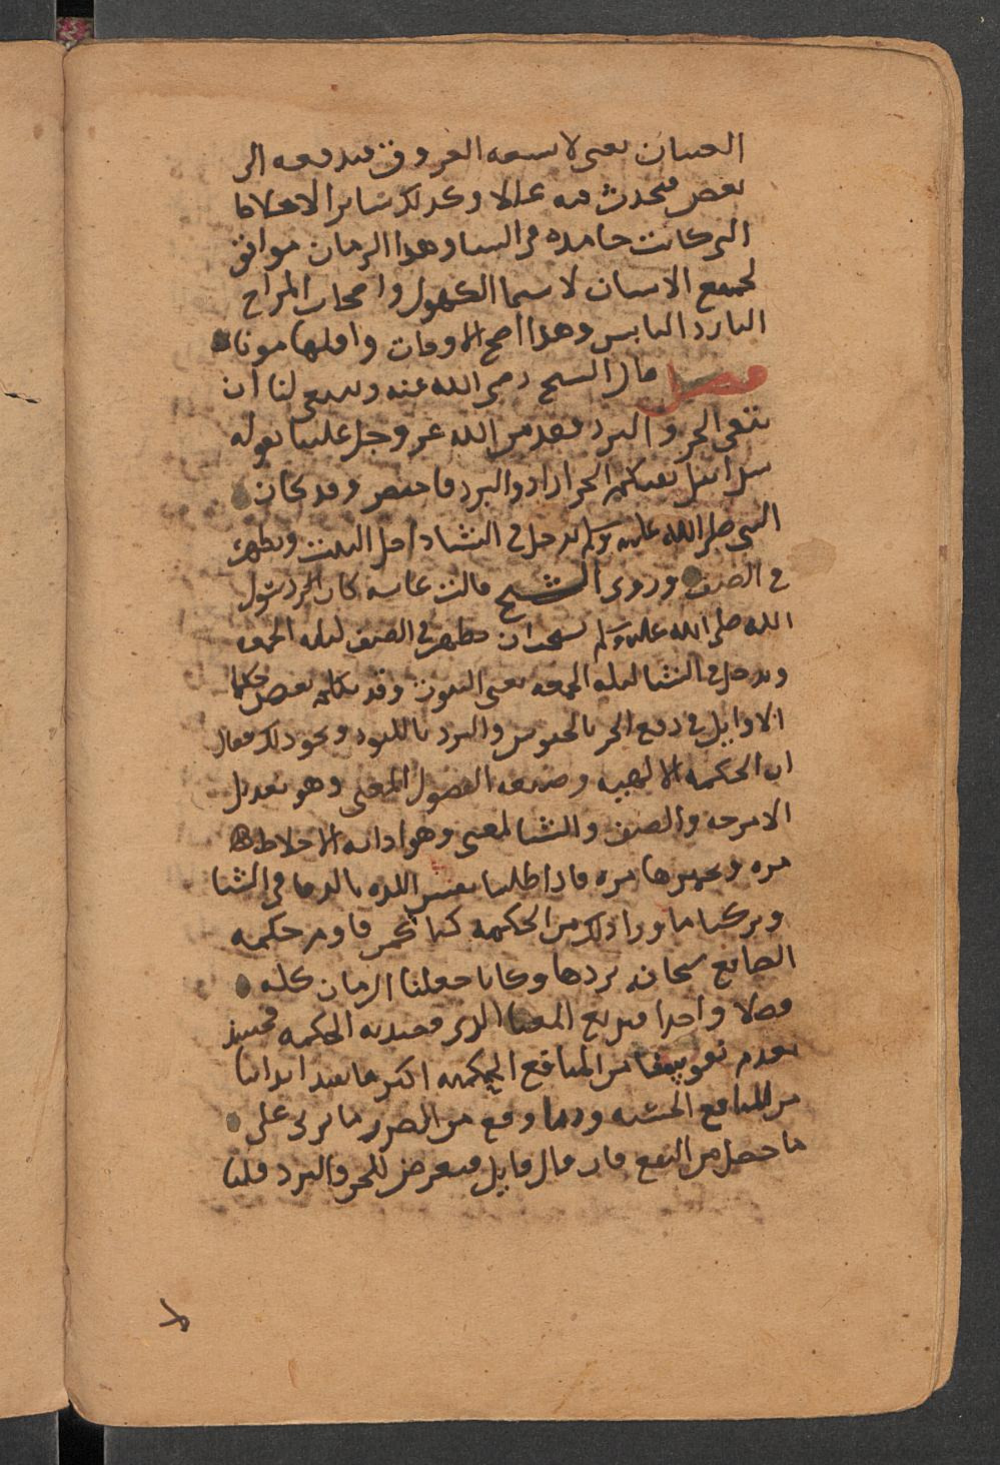 الحسان يعنى لا تسعه العروق فيدفعه الى
بعض فيحدث منه عللا وكذلك سائر الاخلاط
التى كانت جامده فى الشتا وهذا الزمان موافق
لجميع الاسنان لا سيما الكهول واصحاب المزاج
البارد اليابس وهذا اصح الاوقات واقلها موتا
فصل قال الشيخ رضى الله عنه وينبغى لنا ان
نتقى الحر والبرد فقد من الله عز وجل علينا بقوله
سرابيل تقيكم الحر اراد والبرد فاختصر وقد كان
النبى صلى الله عليه وسلم يدخل فى الشتاء داخل البيت ويظهر
فى الصيف وروى الشيخ قالت عايشه كان رسول
الله صلى الله عليه وسلم يستحب ان يظهر فى الصيف ليله الجمعه
ويدخل فى الشتا ليله الجمعه يعنى البيوت وقد تكلم بعض حكما
الاوايل فى دفع الحر بالخيوش والبرد باللبود ونحو ذلك فقال
ان الحكمه الالهيه وضعت الفصول لمعنى وهو تعديل
الامزجه والصيف والشتا لمعنى وهو اذابه الاخلاط
مره وتخميرها مره فاذا طلبنا نفس اللذه بالدفا فى الشتا
وتركنا ما ورا ذلك من الحكمه كنا كمن قاوم حكمه
الصانع سبحانه بردها وكانا جعلنا الزمان كله
فصلا واحدا فيرتفع المعنا الذى قصدته الحكمه فحينئذ
نعدم نفوسنا من المنافع الحكميه اكثر ما نفيد ابداننا
من المنافع الحسيه وربما وقع من الضرر ما يربى على
ما حصل من النفع فان قال قايل فيعرض للحر والبرد قلنا